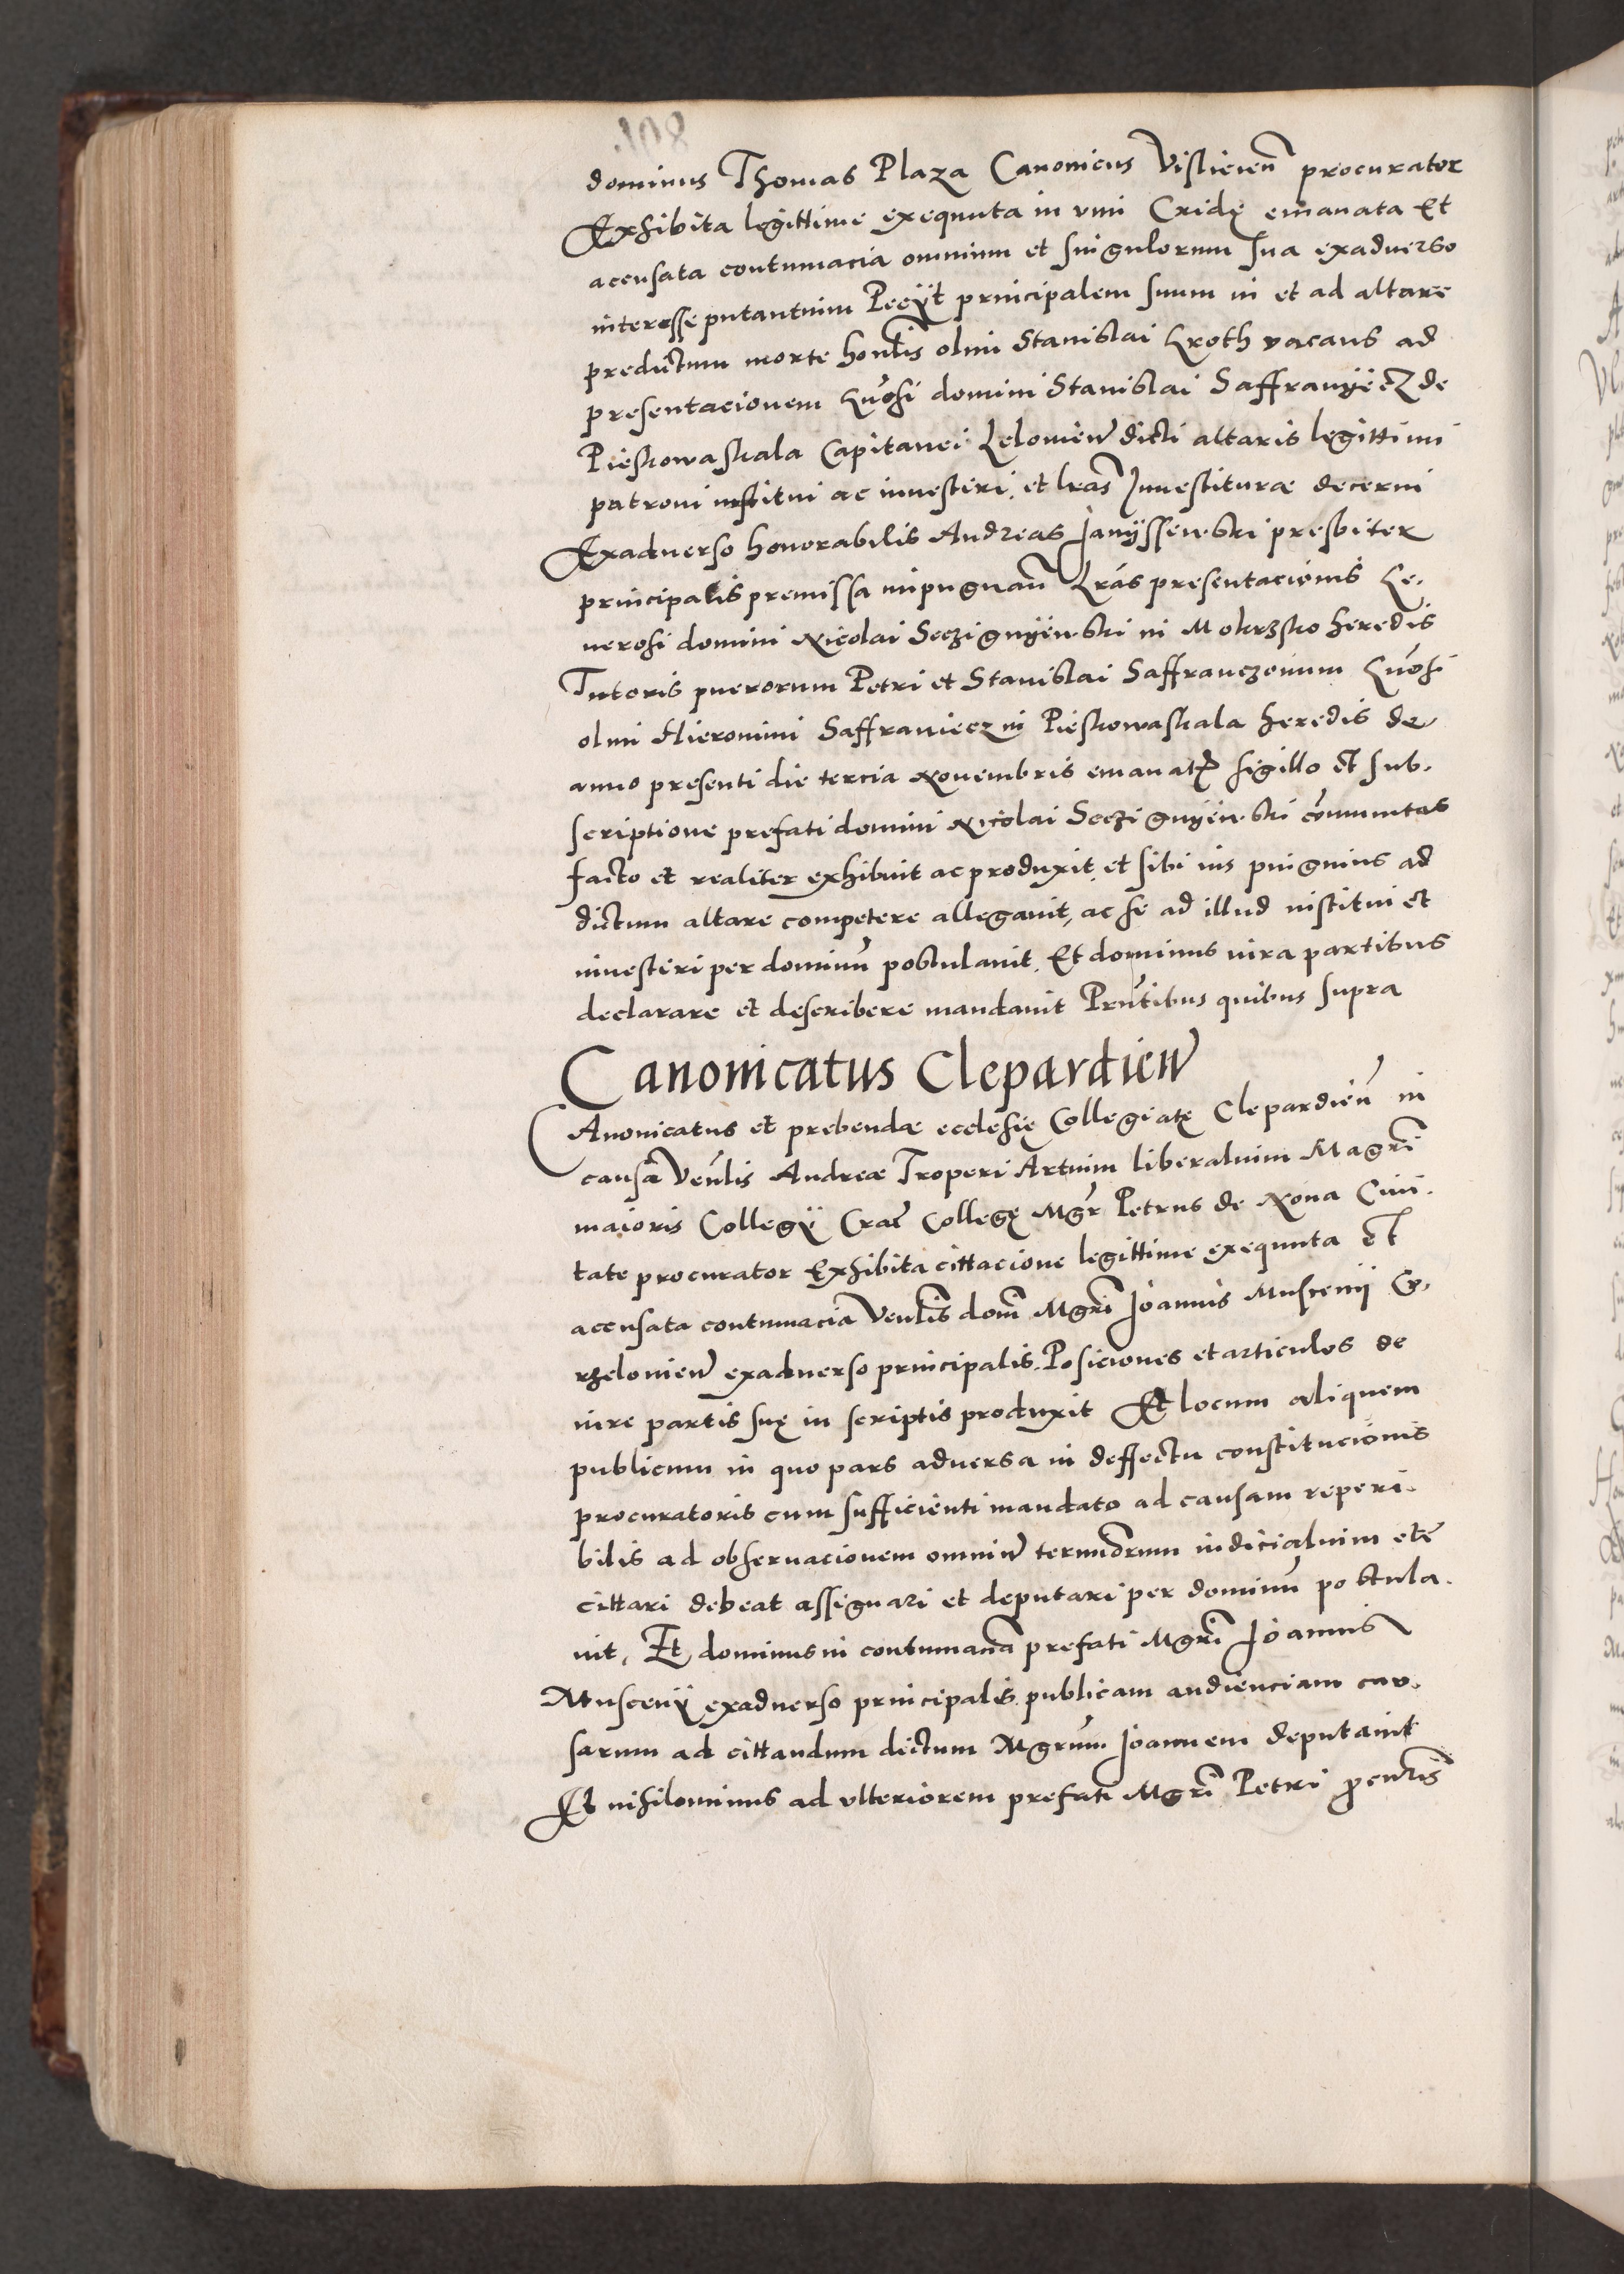 dominus Thomas Plaza Canonicus Visliciens̃ procurator
Exhibita legittime exequuta in vim Cridę emanata Et
accusata contumacia omnium et singulorum sua exaduerso
interesse putantium Pecÿt principalem suum in et ad altare
predictum morte honl̃is olim Stanislai Kroth vacans ad
presentacionem Gñosi domini Stanislai Saffranÿecz de
Pieskowaskala Capitanei Lelovien̄ dicti altaris legittimi
patroni institui ac inuestiri, et lr̃as Inuestituræ decerni
Exaduerso honorabilis Andreas Janÿssewski presbiter
principalis premissa impugnan̄ Lr̃as presentacionis Ge-
nerosi domini Nicolai Seczignÿewski in Mokrzsko heredis
Tutoris puerorum Petri et Stanislai Saffranczonum Gñosi
olim Hieronimi Saffraniecz in Pieskowaskala heredis de
anno presenti die tercia Novembris emanatas sigillo et sub-
scriptione prefati domini Nicolai Seczignÿewski cõmunitas
facto et realiter exhibuit ac produxit, et sibi ius pinguius ad
dictum altare competere allegauit, ac se ad illud institui et
inuestiri per dominũ postulauit, Et dominus iura partibus
declarare et describere mandauit Prñtibus quibus supra
Canonicatus Clepardien̄
Canonicatus et prebendæ ecclesię Collegiatę Clepardien̄ in
causa Venl̃is Andreæ Troperi Artium liberalium Magrĩ
maioris Collegÿ Crac̃ Collegę Mgr̃ Petrus de Noua Ciui-
tate procurator Exhibita cittacione legittime exequuta et
accusata contumacia Venl̃is dom̃ Mgrĩ Joannis Muscenÿ
rzelouien̄ exaduerso principalis. Posiciones et articulos de
iure partis suę in scriptis produxit Et locum aliquem
publicum in quo pars aduersa in deffectu constitucionis
procuratoris cum sufficienti mandato ad causam reperi-
bilis ad obseruacionem omniũ terminorum iudicialium etc̃
cittari debeat assignari et deputari per dominũ postula-
uit, Et dominus in contumaciã prefati Mgrĩ Joannis
Muscenÿ exaduerso principalis publicam audienciam cau-
sarum ad cittandum dictum Mgrũm Joannem deputauit
Et nihilominus ad vlteriorem prefati Mgrĩ Petri procur̃is